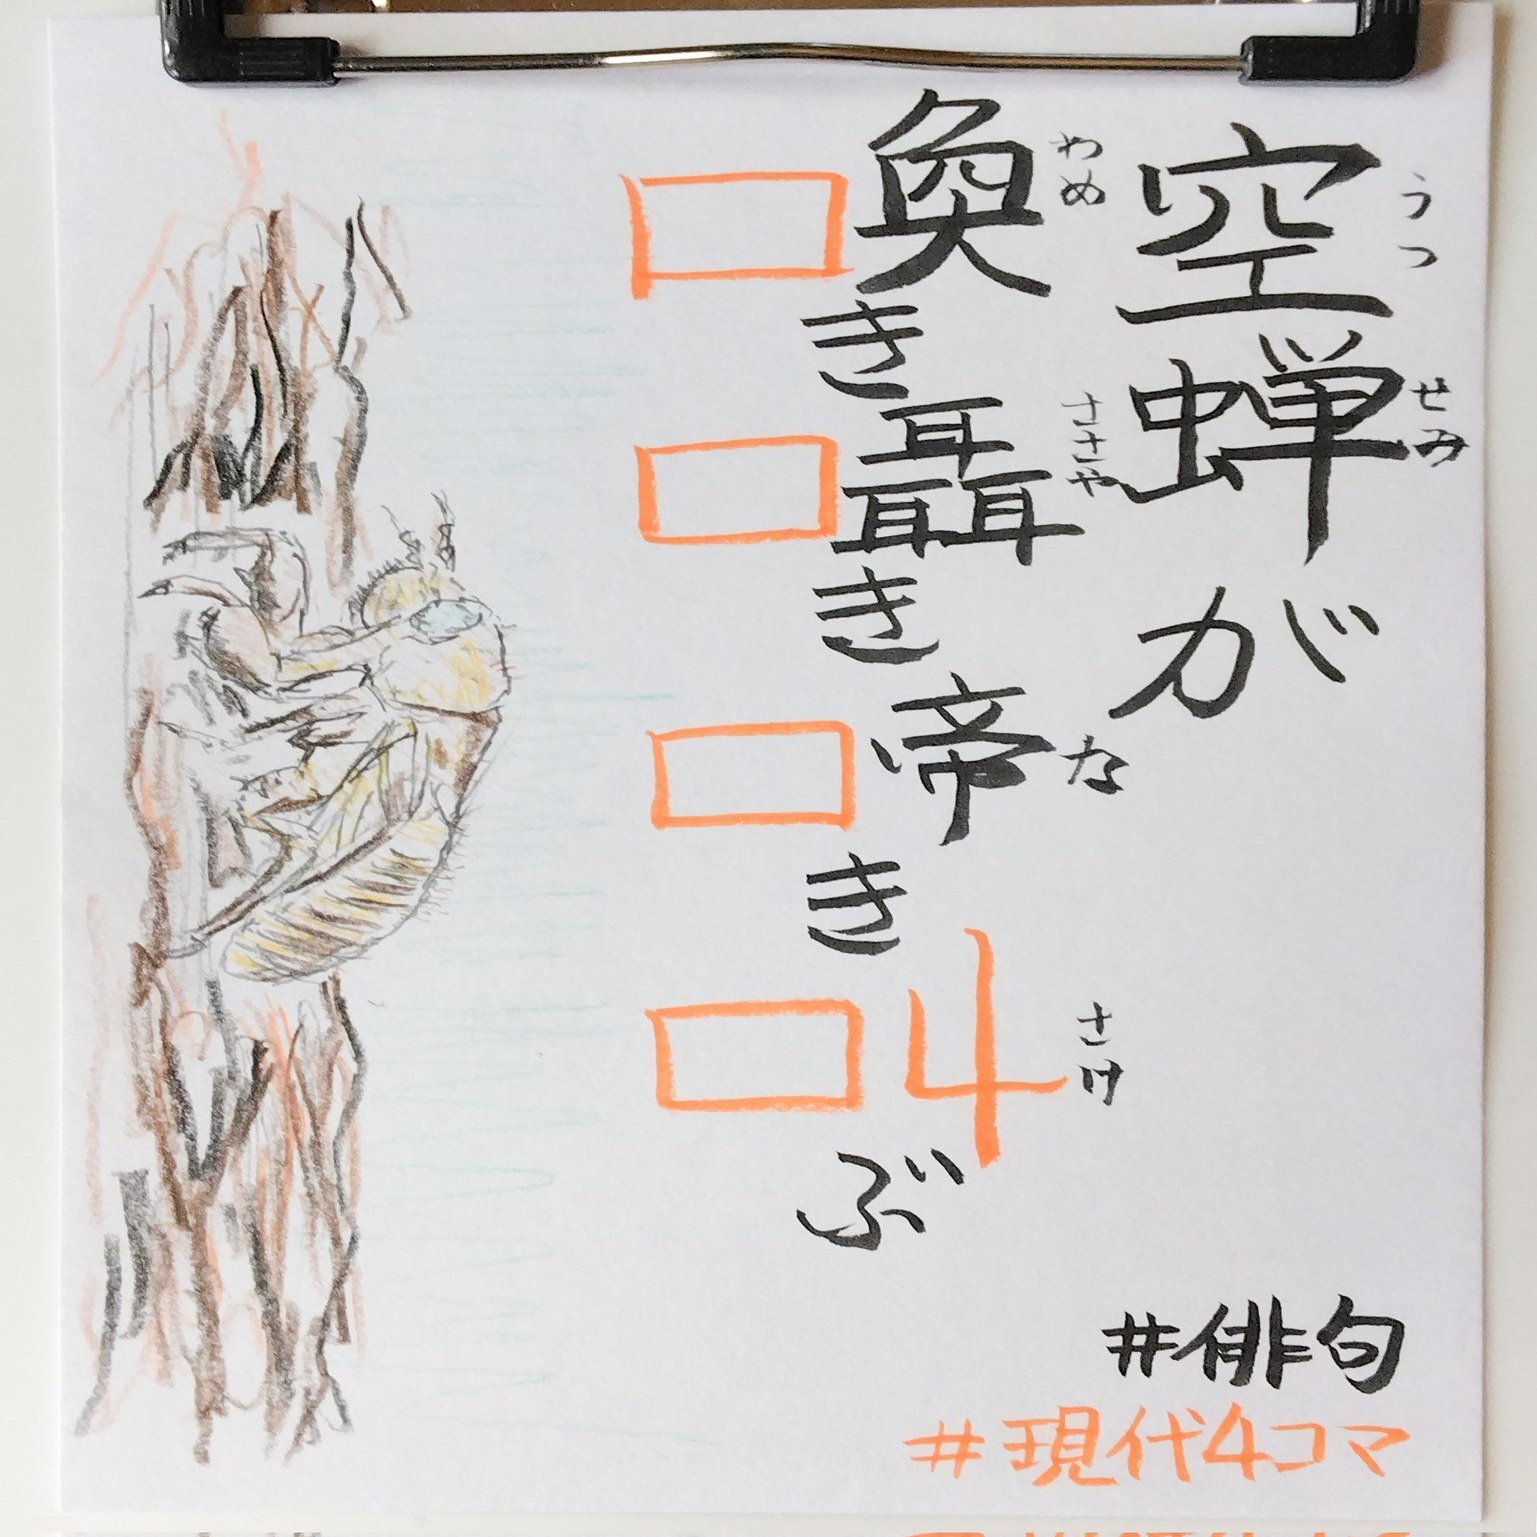 空蝉が
うつせみ
喚き囁き啼き叫ぶ
わめ ささや な さけ
#俳句
#現代4コマ